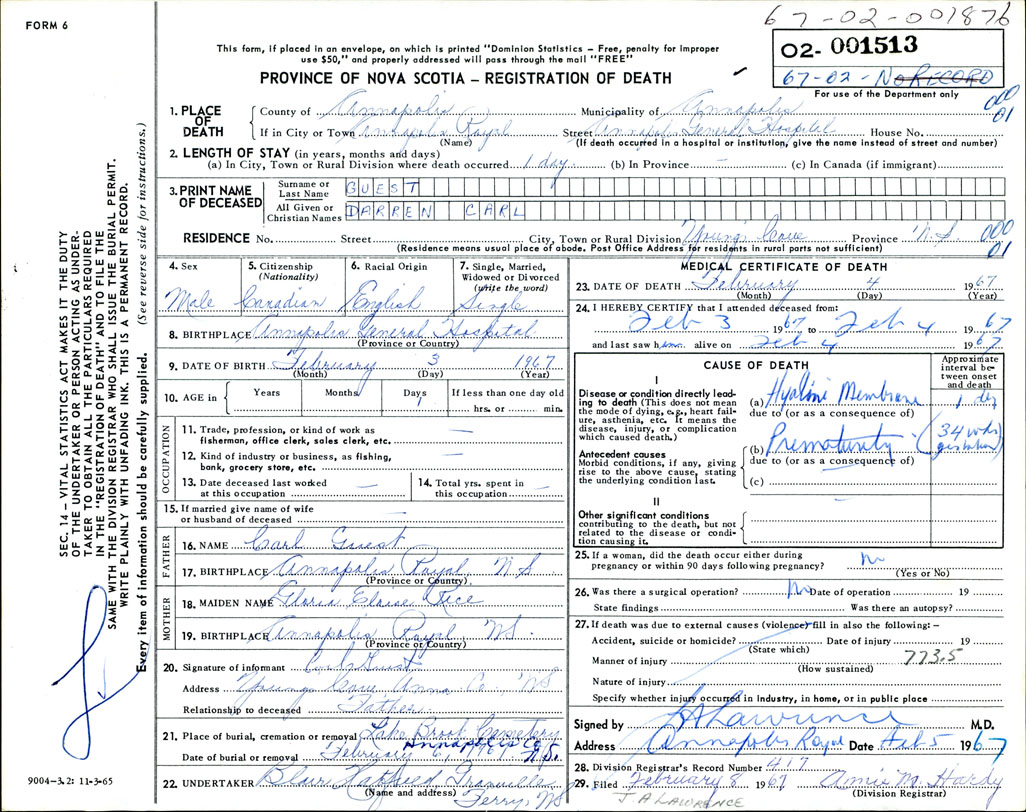 FORM 6
67-02-001876
This form, if placed in an envelope, on which is printed "Dominion Statistics – Free, penalty for improper
use $50," and properly addressed will pass through the mail "FREE"
02- 001513
67-02- No RECORD
For use of the Department only
PROVINCE OF NOVA SCOTIA – REGISTRATION OF DEATH
000
01
1. PLACE OF DEATH
County of Annapolis Municipality of Annapolis
If in City or Town Annapolis Royal Street Annapolis General Hospital House No.
(Name) (If death occurred in a hospital or institution, give the name instead of street and number)
2. LENGTH OF STAY (in years, months and days)
(a) In City, Town or Rural Division where death occurred 1 day (b) In Province – (c) In Canada (if immigrant)
3. PRINT NAME OF DECEASED
Surname or Last Name GUEST
All Given or Christian Names DARREN CARL
RESIDENCE No. Street City, Town or Rural Division Young's Cove Province N.S. 000
01
(Residence means usual place of abode. Post Office Address for residents in rural parts not sufficient)
4. Sex 5. Citizenship (Nationality) 6. Racial Origin 7. Single, Married, Widowed or Divorced (write the word)
Male Canadian English Single
8. BIRTHPLACE Annapolis General Hospital
(Province or Country)
9. DATE OF BIRTH February 3 1967
(Month) (Day) (Year)
10. AGE in Years Months Days If less than one day old
1 hrs. or min.
OCCUPATION
11. Trade, profession, or kind of work as
fisherman, office clerk, sales clerk, etc. —
12. Kind of industry or business, as fishing,
bank, grocery store, etc. —
13. Date deceased last worked
at this occupation —
14. Total yrs. spent in
this occupation —
15. If married give name of wife
or husband of deceased —
FATHER
16. NAME Carl Guest
17. BIRTHPLACE Annapolis Royal N.S.
(Province or Country)
MOTHER
18. MAIDEN NAME Gloria Eloise Rice
19. BIRTHPLACE Annapolis Royal NS.
(Province or Country)
20. Signature of informant Carl Guest
Address Young's Cove Anna Co., NS
Relationship to deceased Father
21. Place of burial, cremation or removal Lake Brook Cemetery
Annapolis Co. N.S.
Date of burial or removal February 6, 1967
22. UNDERTAKER Granville
(Name and address) Ferry NS
MEDICAL CERTIFICATE OF DEATH
23. DATE OF DEATH February 4 1967
(Month) (Day) (Year)
24. I HEREBY CERTIFY that I attended deceased from:
Feb 3 1967 to Feb 4 1967
and last saw him alive on Feb 4 1967
CAUSE OF DEATH
Approximate interval between onset and death
I
Disease or condition directly leading to death (This does not mean
the mode of dying, e.g., heart failure, asthenia, etc. It means the
disease, injury, or complication
which caused death.)
(a) Hyaline Membrane 1 day
due to (or as a consequence of)
Antecedent causes
Morbid conditions, if any, giving
rise to the above cause, stating
the underlying condition last.
(b) Prematurity (34 wks gestation)
due to (or as a consequence of)
(c)
II
Other significant conditions
contributing to the death, but not
related to the disease or condition causing it.
25. If a woman, did the death occur either during
pregnancy or within 90 days following pregnancy? No
(Yes or No)
26. Was there a surgical operation? No Date of operation 19
State findings Was there an autopsy?
27. If death was due to external causes (violence) fill in also the following: –
Accident, suicide or homicide? Date of injury 19
(State which)
Manner of injury 773.5
(How sustained)
Nature of injury
Specify whether injury occurred in industry, in home, or in public place
Signed by Lawrence M.D.
Address Annapolis Royal Date Feb 5 1967
28. Division Registrar's Record Number 417
29. Filed February 8 1967 Amie M. Hardy
(Division Registrar)
J. A LAWRENCE
SEC. 14 – VITAL STATISTICS ACT MAKES IT THE DUTY
OF THE UNDERTAKER OR PERSON ACTING AS UNDER-
TAKER TO OBTAIN ALL THE PARTICULARS REQUIRED
IN THE "REGISTRATION OF DEATH" AND TO FILE THE
SAME WITH THE DIVISION REGISTRAR WHO SHALL ISSUE THE BURIAL PERMIT.
WRITE PLAINLY WITH UNFADING INK. THIS IS A PERMANENT RECORD.
Every item of information should be carefully supplied. (See reverse side for instructions.)
9004-3.2: 11-3-65